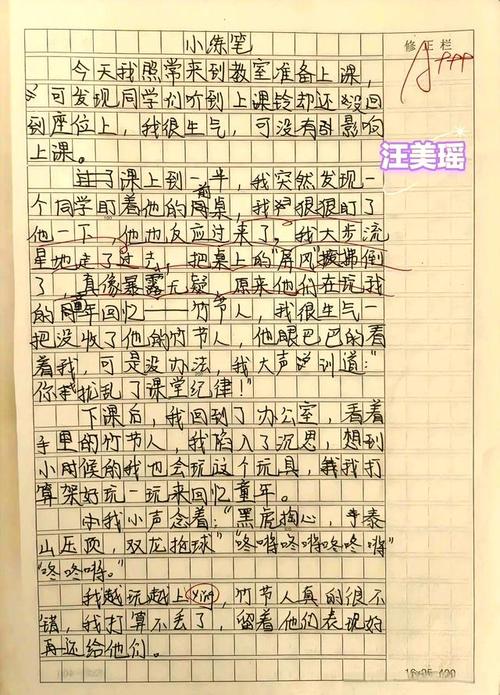 小练笔
修正栏
今天我照常来到教室准备上课,
可发现同学们听到上课铃却还没回
到座位上,我很生气,可没有影响
上课。
汪美瑶
课上到一半,我突然发现一
个同学盯着他的前桌,我狠狠盯了
他一下,他也反应过来了,我大步流
星地走了过去,把桌上的“屏风”拨倒
了,真像暴露无疑,原来他们在玩我
的童年回忆——竹节人,我很生气一
把没收了他的竹节人,他眼巴巴的看
着我,可是没办法,我大声训道:“
你扰乱了课堂纪律!”
下课后,我回到了办公室,看着
手里的竹节人,我陷入了沉思,想到
小时候的我也会玩这个玩具,我打
算架好玩一玩来回忆童年。
我小声念着:“黑虎掏心,泰
山压顶,双龙抢球”“咚嘚咚嘚咚咚嘚”
“咚咚嘚。”
我越玩越上yin,竹节人真的很不
错,我打算不丢了,留着他们表现好
再还给他们。